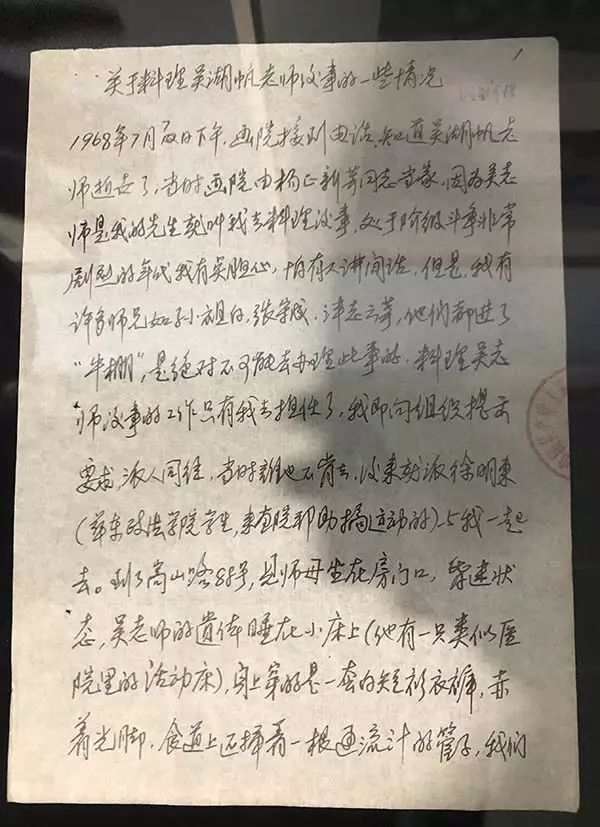 1
关于料理吴湖帆老师后事的一些情况
1968年7月 日下午，画院接到电话，知道吴湖帆老
师逝世了，当时画院由杨正新等同志当家，因为吴老
师是我的先生就叫我去料理后事，处于阶级斗争非常
剧烈的年代我有点担心，怕有人讲闲话，但是，我有
许多师兄如孙祖白、张守成、 志云等，他们都进了
“牛棚”，是绝对不可能去办理此事的，料理吴老
师后事的工作只有我去担任了，我即向组织提出
要求，派人同往，当时谁也不肯去，后来就派徐明东
（华东政法学院学生，来画院帮助搞运动的）与我一起
去。到了嵩山路88号，见师母坐在房门口， 状
态，吴老师的遗体睡在小床上（他有一只类似医
院里的活动床），身上穿的是一套白短衫衣裤，赤
着光脚，食道上还插着一根通流汁的管子，我们